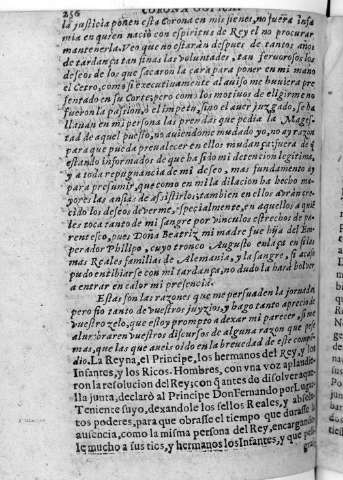 256 CORONA GOTICA
la justicia ponen esta Corona en mis sienes, no fuera infa
mia en quien nació con espiritus de Rey el no procurar
mantenerla. Veo que no estarán despues de tantos años
de tardança tan finas las voluntades, tan feruorosos los
deseos de los que sacaron la cara para poner en mi mano
el Cetro, como si executiuamente al auiso me huuiera pre
sentado en su Corte; pero como los motiuos de eligirme no
fueron la passion, ò el impetu, sino el auer juzgado, se ha
llauan en mi persona las prendas que pedia la Mages-
tad de aquel puesto, no auiendome mudado yo, no ay razon
para que pueda preualecer en ellos mudança; fuera de q
estando informados de que ha sido mi detencion legitima,
y a toda repugnancia de mi deseo, mas fundamento ay
para presumir, que como en mi la dilacion ha hecho ma-
yores las ansias de assistirlos, tambien en ellos avràn cre-
cido los deseos de verme, especialmente, en aquellos a quiē
les toca tanto de mi sangre por vinculos estrechos de pa-
rentesco, pues Doña Beatriz mi madre fue hija del Em-
perador Philipo, cuyo tronco Augusto enlaça en si las
mas Reales familias de Alemania, y la sangre, si acaso
pudo entibiarse con mi tardança, no dudo la harà bolver
a entrar en calor mi presencia.
Estas son las razones que me persuaden la jornada,
pero fio tanto de vuestros juyzios, y hago tanto aprecio de
vuestro zelo, que estoy prompto a dexar mi parecer, si me
alumbraren vuestros discursos de alguna razon que pese
mas, que las que aueis oido en la breuedad de este compe-
dio. La Reyna, el Principe, los hermanos del Rey, y los
Infantes, y los Ricos-Hombres, con vna voz aplaudie
ron la resolucion del Rey; con q̄ antes de disolver aque-
lla junta, declarò al Principe Don Fernando por Lugar
Teniente suyo, dexandole los sellos Reales, y absolu-
tos poderes, para que obrasse el tiempo que durasse la
ausencia, como la misma persona del Rey, encargando
le mucho a sus tios, y hermanos los Infantes, y que